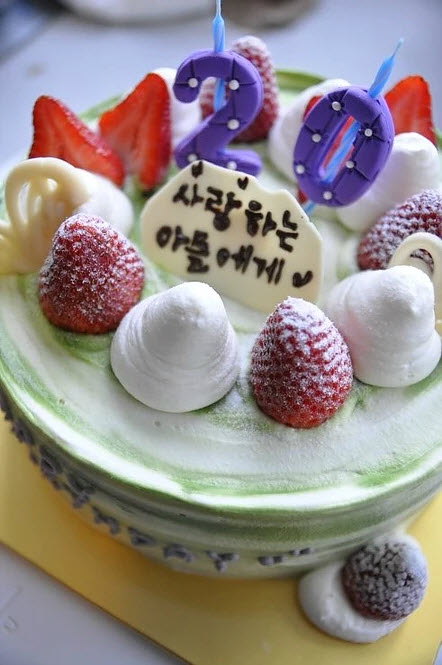 20
사랑하는
아들에게